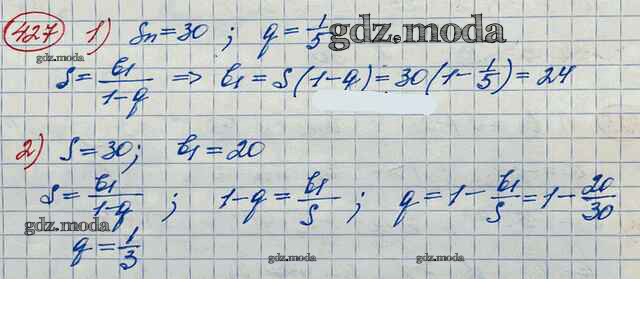 427 1) Sn = 30 ; q = 1/5
gdz.moda
gdz.moda
S = b1/(1-q) => b1 = S(1-q) = 30(1 - 1/5) = 24
2) S = 30; b1 = 20
S = b1/(1-q) ; 1-q = b1/S ; q = 1 - b1/S = 1 - 20/30
gdz.moda
q = 1/3
gdz.moda
gdz.moda